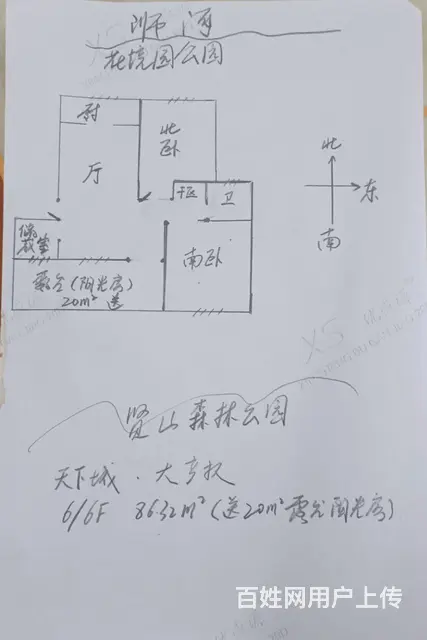 浉河
花境园公园
厨
北卧
厅
干区
卫
北
东
南
储藏室
南卧
露台(阳光房)
20m² 送
贤山森林公园
天下城·大产权
6/6F 86.32m²(送20m²露台阳光房)
百姓网用户上传